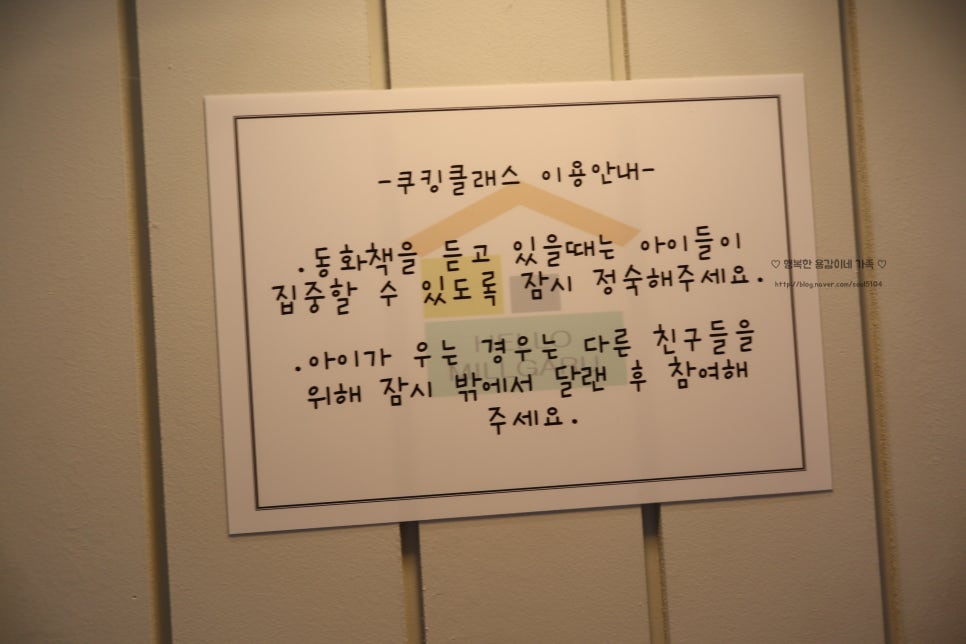 -쿠킹클래스 이용안내-
.동화책을 듣고 있을때는 아이들이
집중할 수 있도록 잠시 정숙해주세요.
♡ 행복한 용감이네 가족 ♡
http://blog.naver.com/soul5104
HELLO
MILLGARU
.아이가 우는 경우는 다른 친구들을
위해 잠시 밖에서 달랜 후 참여해
주세요.